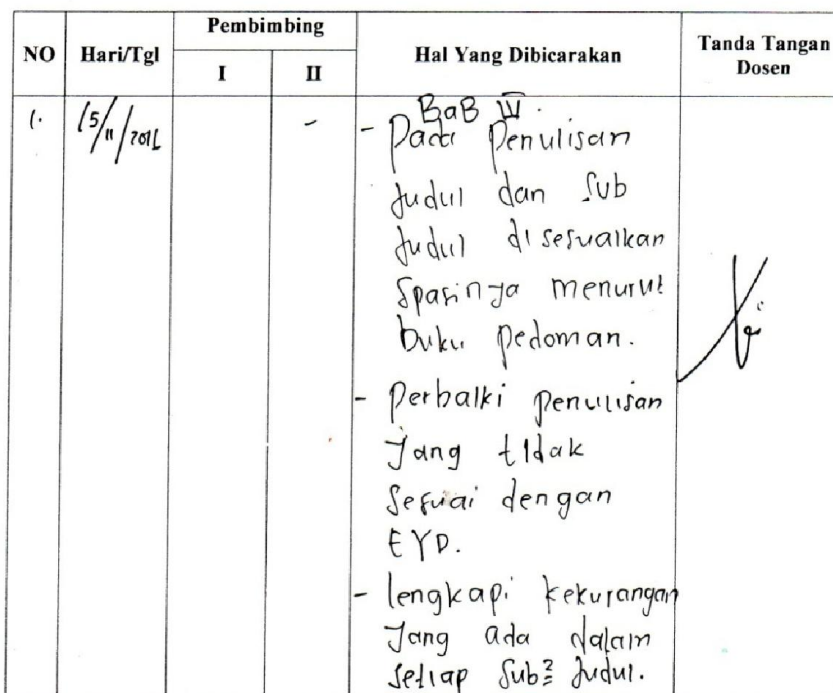 NO Hari/Tgl Pembimbing Hal Yang Dibicarakan Tanda Tangan Dosen
I II
1. 15/11/2016 -
BaB IV.
- Pada Penulisan
Judul dan Sub
Judul disesuaikan
Spasinya menurut
buku pedoman.
- Perbaiki penulisan
Yang tidak
Sesuai dengan
EYD.
- lengkapi kekurangan
Yang ada dalam
setiap Sub² Judul.